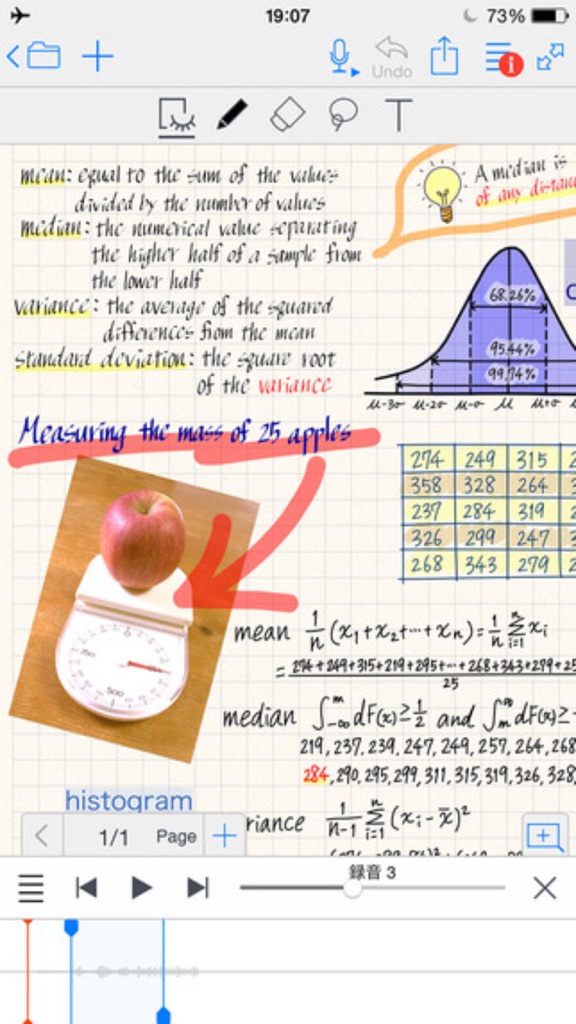 19:07
73%
Undo
i
T
mean: equal to the sum of the values
divided by the number of values
median: the numerical value separating
the higher half of a sample from
the lower half
variance: the average of the squared
differences from the mean
standard deviation: the square root
of the variance
A median is
of any distan
68.26%
95.44%
99.74%
μ-3σ μ-2σ μ-σ μ μ+σ
Measuring the mass of 25 apples
274 249 315
358 328 264
237 284 319
326 299 247
268 343 279
mean 1/n (x₁+x₂+…+xₙ)=1/n Σⁿᵢ₌₁ xᵢ
= 274+249+315+219+295+…+268+343+279+25
25
median ∫ᵐ₋∞ dF(x)≥1/2 and ∫∞ₘ dF(x)≥
219, 237, 239, 247, 249, 257, 264, 268
284, 290, 295, 299, 311, 315, 319, 326, 328,
histogram
riance 1/n-1 Σⁿᵢ₌₁ (xᵢ-x̄)²
1/1 Page
録音 3